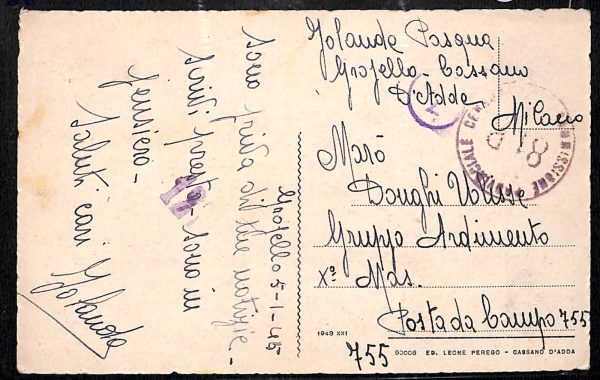 Jolanda Pasqua
Grosello-Cassano
D'Adda
Milano
2
COMMISSIONE PROVINCIALE CENSURA
8
Marò
Donghi Ulisse
Gruppo Ardimento
Xº Mas.
Posta da Campo 755
755
Grosello 5-1-45
sono priva di tue notizie-
scrivi presto- sono in
pensiero-
Saluti cari Jolanda
1943 XXI
90008 ED. LEONE PEREGO - CASSANO D'ADDA